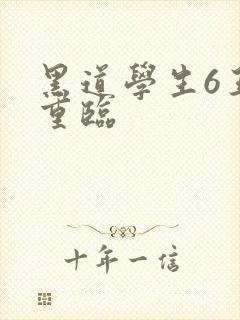 黑道學生6王
重臨
十年一信